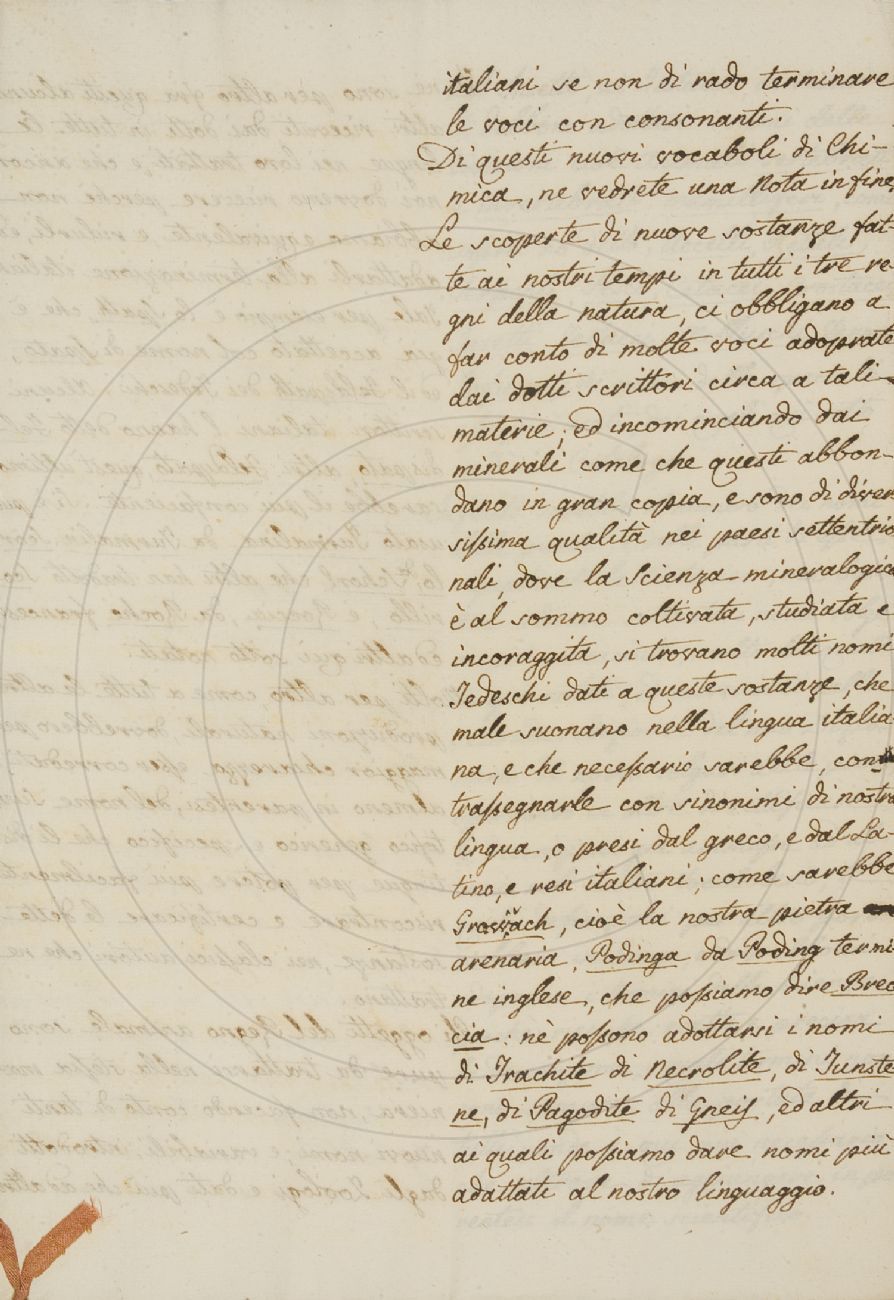 italiani se non di rado terminare
le voci con consonanti.
Di questi nuovi vocaboli di Chi-
mica, ne vedrete una Nota in fine,
Le scoperte di nuove sostanze fat-
te ai nostri tempi in tutti i tre re-
gni della natura, ci obbligano a
far conto di molte voci adoprate
dai dotti scrittori circa a tali
materie; ed incominciando dai
minerali come che questi abbon-
dano in gran copia, e sono di diver
sissima qualità nei paesi settentrio
nali, dove la Scienza mineralogica
è al sommo coltivata, studiata e
incoraggita, si trovano molti nomi
Tedeschi dati a queste sostanze, che
male suonano nella lingua italia
na, e che necessario sarebbe, con
trassegnarle con sinonimi di nostra
lingua, o presi dal greco, e dal La-
tino, e resi italiani; come sarebbe
cioè la nostra pietra
arenaria, Podinga da Poding termi
ne inglese, che possiamo dire Brec
cia: nè possono adottarsi i nomi
di Trachite di Necrolite, di Tunste
ne, di Pagodite di Gneis, ed altri
ai quali possiamo dare nomi più
adattati al nostro linguaggio.